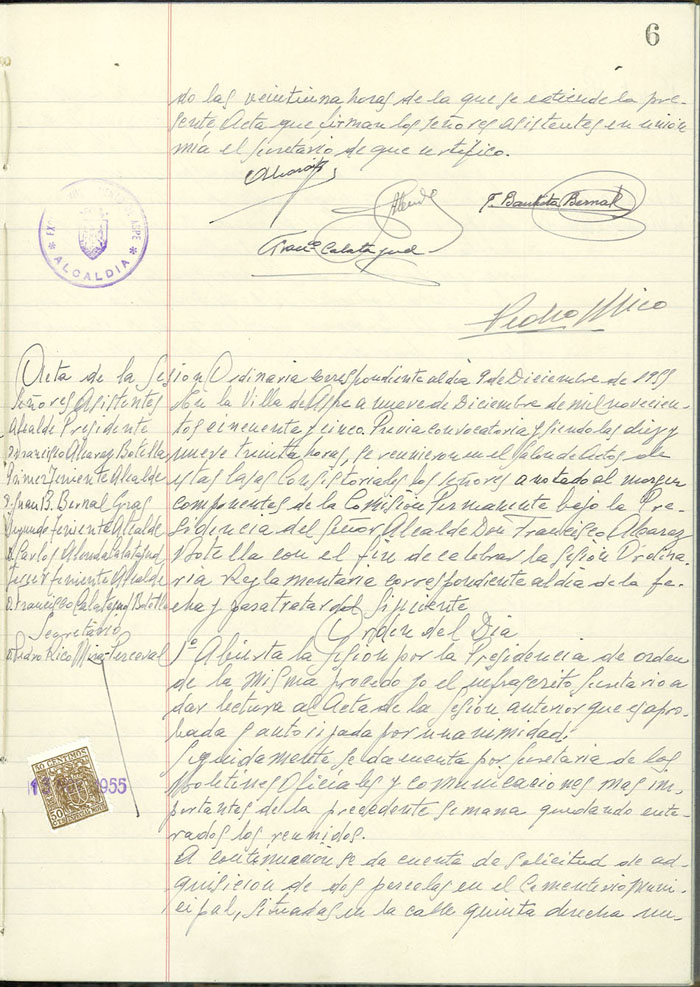 6
do las veintiuna horas de la que se extiende la pre-
sente Acta que firman los señores asistentes en unión
mía el Secretario de que certifico.
Alvarez
T. Bautista Bernal
Franco Calatayud
Pedro Rico
ALCALDIA
Acta de la Sesion Ordinaria correspondiente al dia 9 de Diciembre de 1955
Señores Asistentes
Alcalde Presidente
D. Francisco Alvarez Botella
Primer Teniente Alcalde
D. Juan B. Bernal Gras
Segundo Teniente Alcalde
D. Carlos Alenda Calatayud
Tercer Teniente Alcalde
D. Francisco Calatayud Botella
Secretario
D. Pedro Rico
En la Villa de Aspe a nueve de Diciembre de mil novecien-
tos cincuenta y cinco. Previa convocatoria y siendo las diez y
nueve treinta horas, se reunieron en el Salon de Actos de
estas Casas Consistoriales los señores anotado al margen
componentes de la Comisión Permanente bajo la Pre-
sidencia del Señor Alcalde Don Francisco Alvarez
Botella con el fin de celebrar la Sesión Ordina-
ria Reglamentaria correspondiente al dia de la fe-
cha y para tratar del siguiente
Orden del Dia
1º Abierta la Sesión por la Presidencia de orden
de la misma procedo yo el infrascrito Secretario a
dar lectura al Acta de la Sesion anterior que es apro-
bada y autorizada por unanimidad.
Seguidamente, se da cuenta por Secretaria de los
Boletines Oficiales y comunicaciones mas im-
portantes de la precedente semana quedando ente-
rados los reunidos.
A continuación se da cuenta de solicitud de ad-
quisición de dos parcelas en el Cementerio Muni-
cipal, situadas en la calle quinta derecha nu-
50 CENTIMOS
1955
50